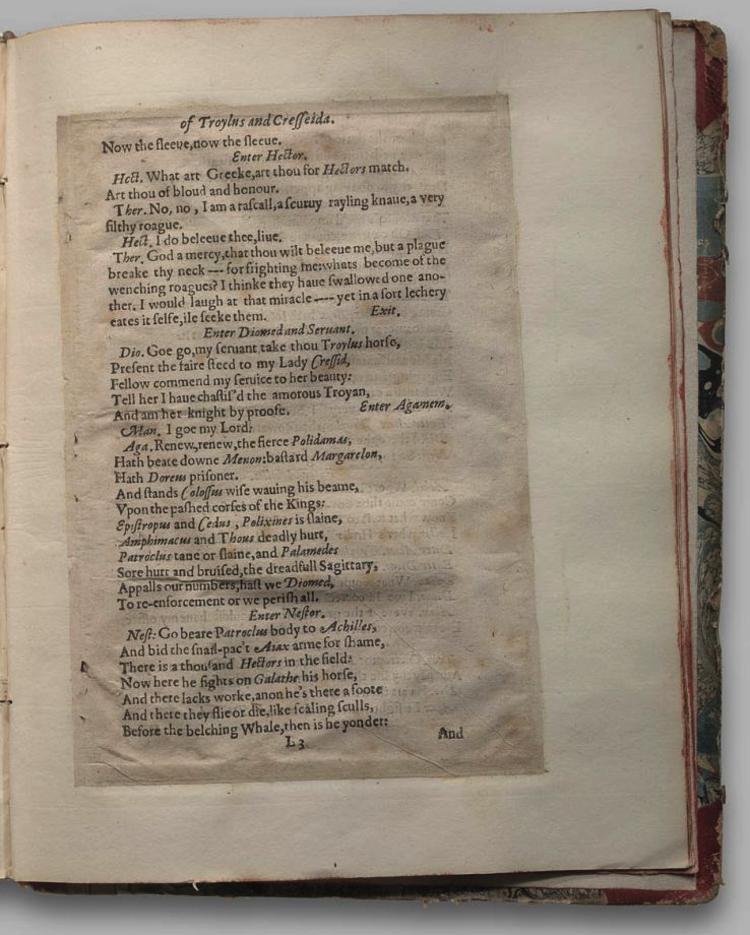 of Troylus and Cresseida.
Now the sleeue, now the sleeue.
Enter Hector.
Hect. What art Greeke, art thou for Hectors match.
Art thou of bloud and honour.
Ther. No, no, I am a rascall, a scuruy rayling knaue, a very
filthy roague.
Hect. I do beleeue thee, liue.
Ther. God a mercy, that thou wilt beleeue me, but a plague
breake thy neck --- for frighting me: whats become of the
wenching roagues? I thinke they haue swallowed one ano-
ther. I would laugh at that miracle ---- yet in a sort lechery
eates it selfe, ile seeke them. Exit.
Enter Diomed and Seruant.
Dio. Goe go, my seruant take thou Troylus horse,
Present the faire steed to my Lady Cressid,
Fellow commend my seruice to her beauty:
Tell her I haue chastis'd the amorous Troyan,
And am her knight by proofe. Enter Agamem.
Man. I goe my Lord:
Aga. Renew, renew, the fierce Polidamas,
Hath beate downe Menon: bastard Margarelon,
Hath Doreus prisoner.
And stands Colossus wise wauing his beame,
Vpon the pashed corses of the Kings:
Epistropus and Cedus, Polixines is slaine,
Amphimacus and Thous deadly hurt,
Patroclus tane or slaine, and Palamedes
Sore hurt and bruised, the dreadfull Sagittary,
Appalls our numbers, hast we Diomed,
To re-enforcement or we perish all.
Enter Nestor.
Nest: Go beare Patroclus body to Achilles,
And bid the snail-pac't Aiax arme for shame,
There is a thousand Hectors in the field:
Now here he fights on Galathe his horse,
And there lacks worke, anon he's there a foote
And there they flie or die, like scaling sculls,
Before the belching Whale, then is he yonder:
L3 And